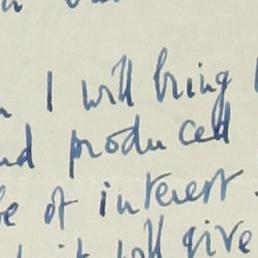 I will bring
produced
of interest
will give